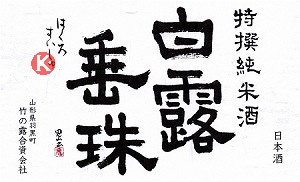 特撰純米酒
日本酒
白露
垂珠
はくろ
すいしゅ
K
山形県羽黒町
竹の露合資会社